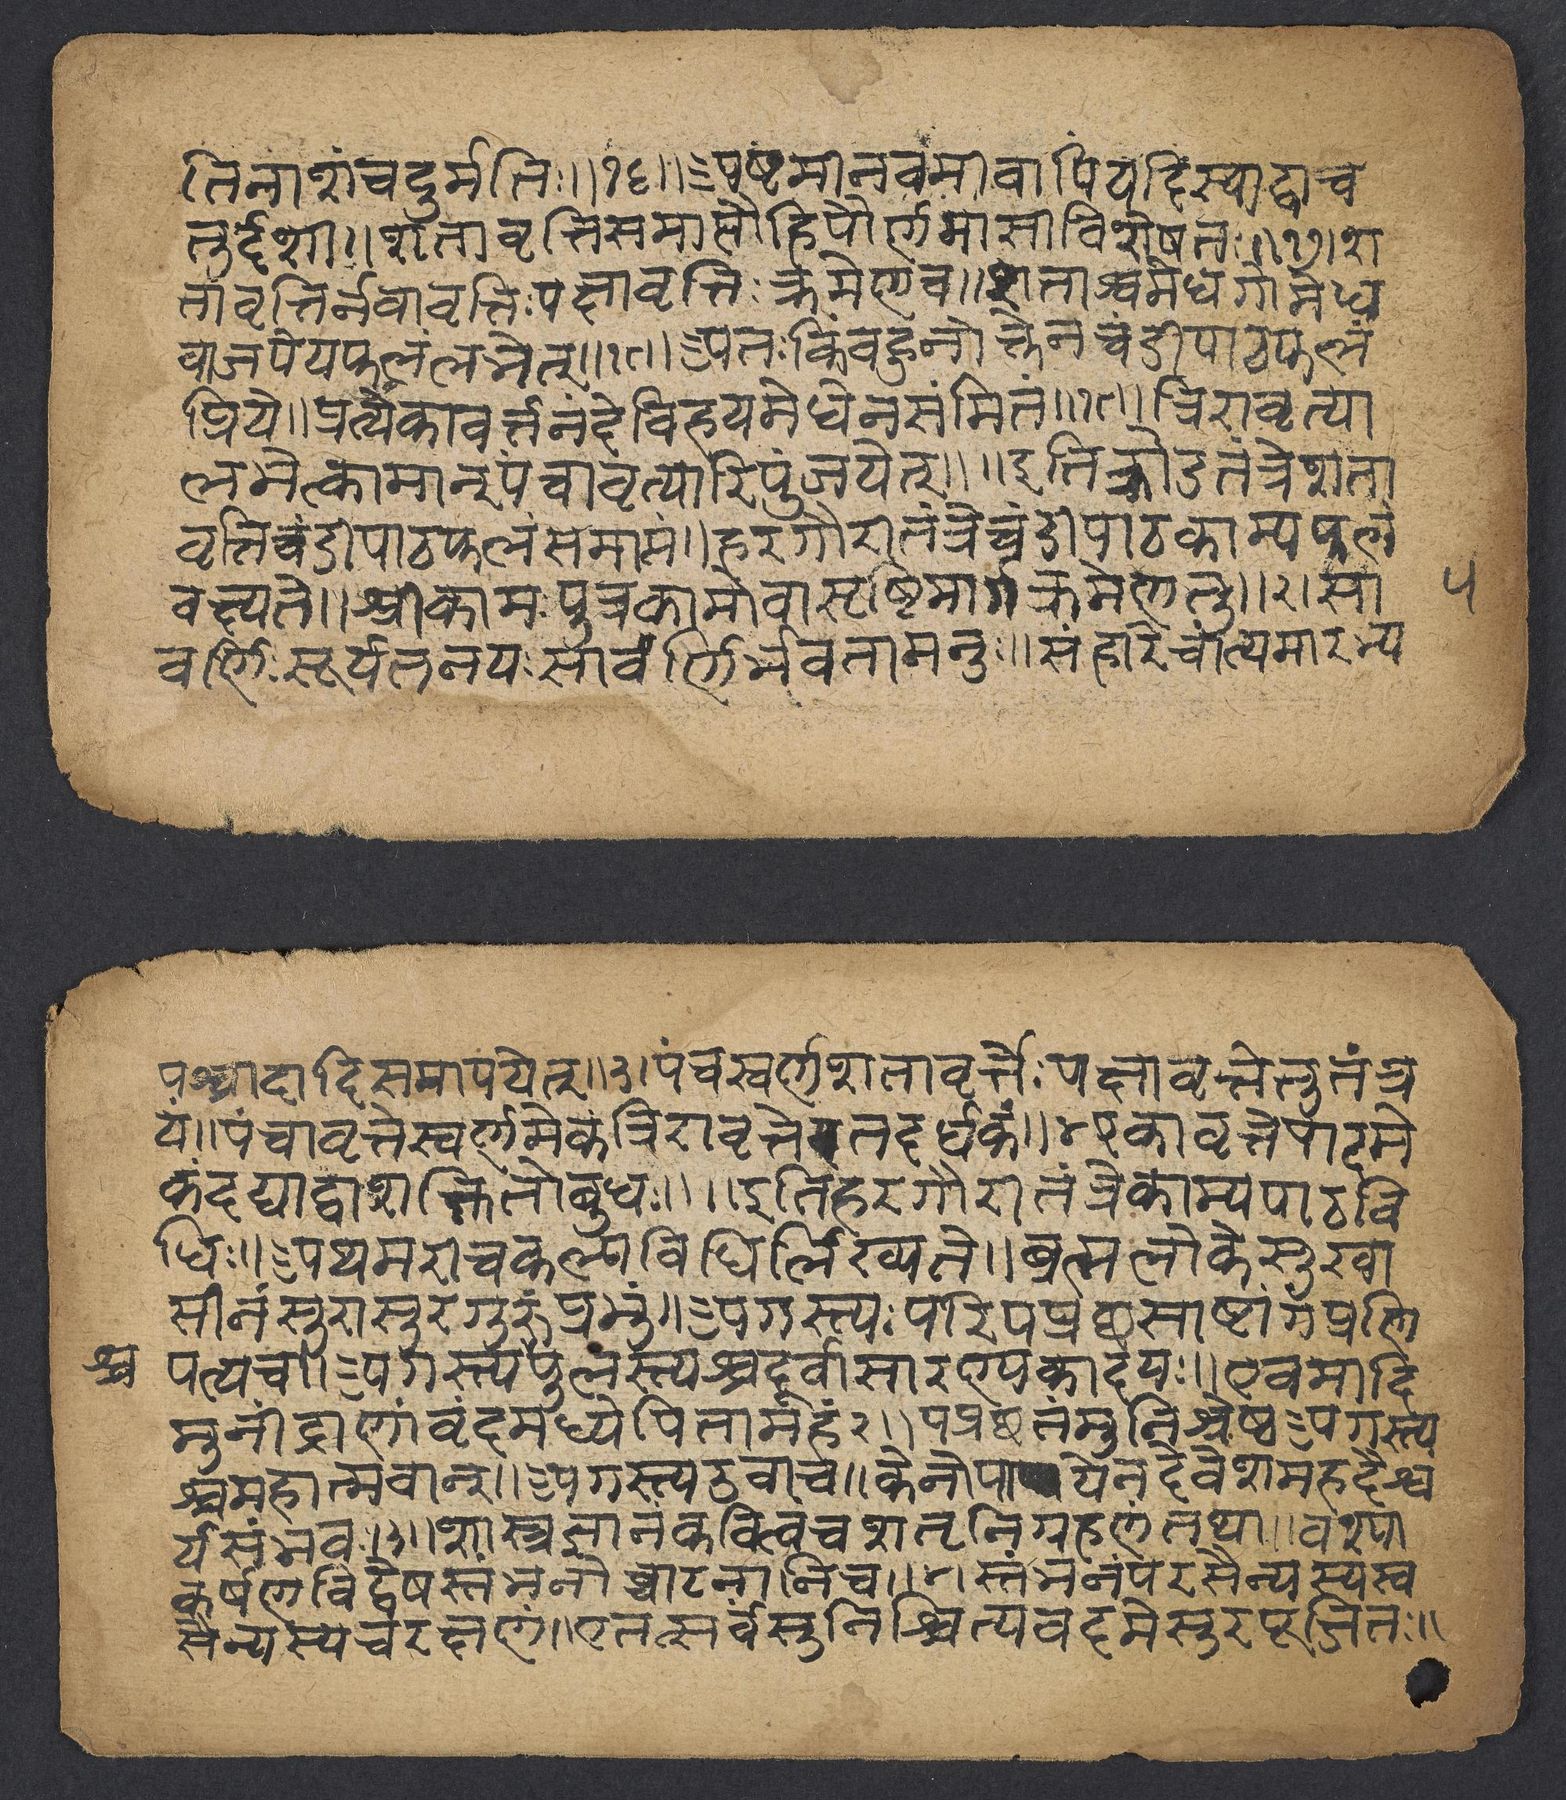 तिनाशंचदुर्मतिः॥१६॥अष्टमीनवमीवापियदिस्याद्वाच
तुर्दशी॥शतावृत्तिसमाप्तौहिपौर्णमासीविशेषतः॥१७।श
तावृत्तिर्नवावृत्तिःपक्षावृत्तिःक्रमेणच॥शताश्वमेधगोमेध
वाजपेयफलंलभेत्॥१८॥अतःकिंवहुनोक्तेनचंडीपाठफलं
प्रिये॥प्रत्येकावर्त्तनंदेविहयमेधेनसंमितं॥१९॥त्रिरावृत्या
लभेत्कामान्पंचावृत्यारिपुंजयेत्॥॥इतिक्रोडतंत्रेशता
वृत्तिचंडीपाठफलंसमाप्तं॥हरगौरीतंत्रेचंडीपाठकाम्यफलं
वक्ष्यते॥श्रीकामःपुत्रकामोवासृष्टिमार्गक्रमेणतु॥२।सा
५
वर्णिःसूर्यतनयःसावर्णिर्भवतामनुः॥संहारेचांत्यमारभ्य
पश्चादादिसमापयेत्॥३।पंचस्वर्णशतावृर्त्तेःपक्षावृत्तेतुतंत्र
यं॥पंचावृत्तेस्वर्णमेकंत्रिरावृत्तेतदर्धकं॥४एकावृत्तेपाटमे
कंदद्याद्वाशक्तितोबुधः॥॥इतिहरगौरीतंत्रेकाम्यपाठवि
धिः॥अथमरीचकल्पविधिर्लिख्यते॥ब्रह्मलोकेसुखा
सीनंसुरासुरगुरुंप्रभुं॥अगस्त्यःपरिपप्रछसाष्टांगंप्रणि
श्च
पत्यच॥अगस्त्यपुलस्त्यश्चदूर्वासारण्यकादयः॥एवमादि
मुनींद्राणांवंदमध्येपितामहं२॥पप्रछतंमुनिश्रेष्ठअगस्त्य
श्चमहात्मवान्॥अगस्त्यउवाच॥केनोपायेनदेवेशमहदैश्व
र्यसंभवः।३॥शास्त्रज्ञानंकवित्वंचशतृनिग्रहणंतथा॥वश्या
कर्षणविद्वेषस्तंभनोच्चाटनानिच॥४।स्तंभनंपरसैन्यस्यस्व
सैन्यस्यचरक्षणं॥एतत्सर्वंसुनिश्चित्यवदमेसुरपूजितः॥